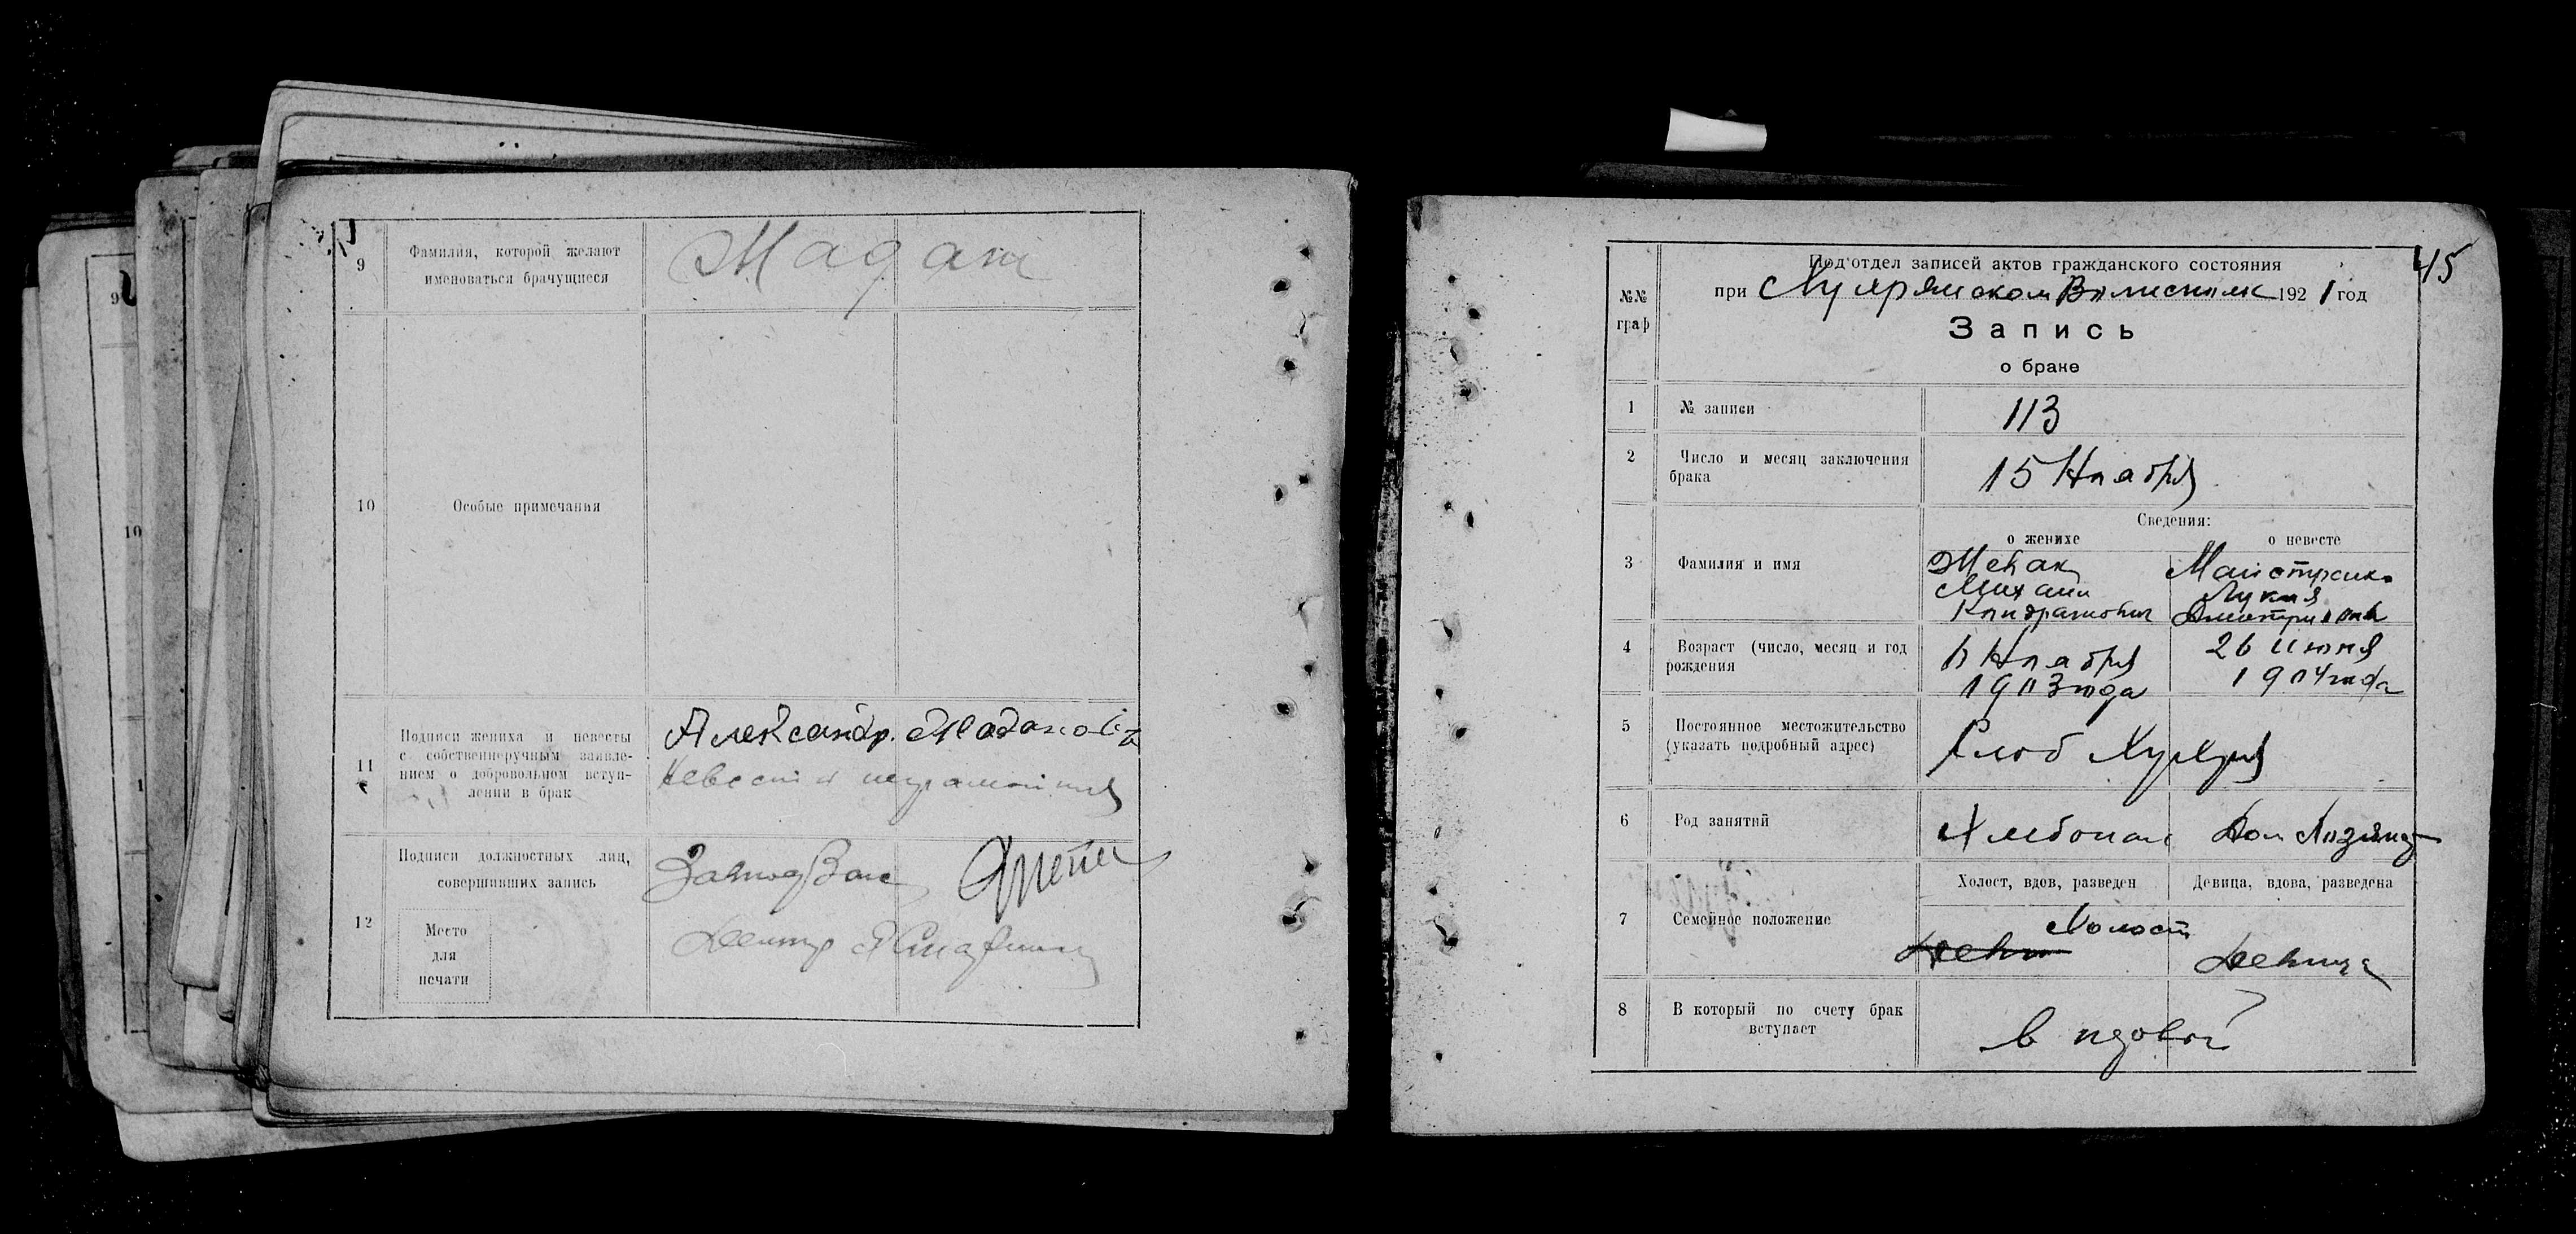 9
Фамилия, которой желают
именоваться брачущиеся
Жадан
10
Особые примечания
11
Подписи жениха и невесты
с собственноручным заявле-
нием о добровольном вступ-
лении в брак
Александр.
Невеста неграмотная
12
Подписи должностных лиц,
совершивших запись
Место
для
печати
9
10
1
45
№№
граф
Под'отдел записей актов гражданского состояния
при Волисполк 1921 год
Запись
о браке
1
№ записи
113
2
Число и месяц заключения
брака
15 Ноября
Сведения:
о женихе
о невесте
3
Фамилия и имя
Михаил
Кондратович
Лукия
Дмитриевна
4
Возраст (число, месяц и год
рождения
Ноября
1903 года
26 июня
1904 года
5
Постоянное местожительство
(указать подробный адрес)
Слоб
6
Род занятий
Хлебопаш
Дом Хозяйка
7
Семейное положение
Холост, вдов, разведен
Девица, вдова, разведена
Холост
Девица
8
В который по счету брак
вступает
в первый